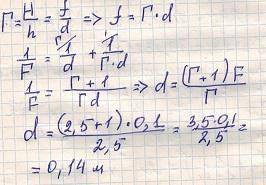 Г = H/h = f/d => f = Г·d
1/F = Г1/d + 1/Г·d
1/F = Г+1/Гd => d = (Г+1)F/Г
d = (2,5+1)·0,1/2,5 = 3,5·0,1/2,5 =
= 0,14 м